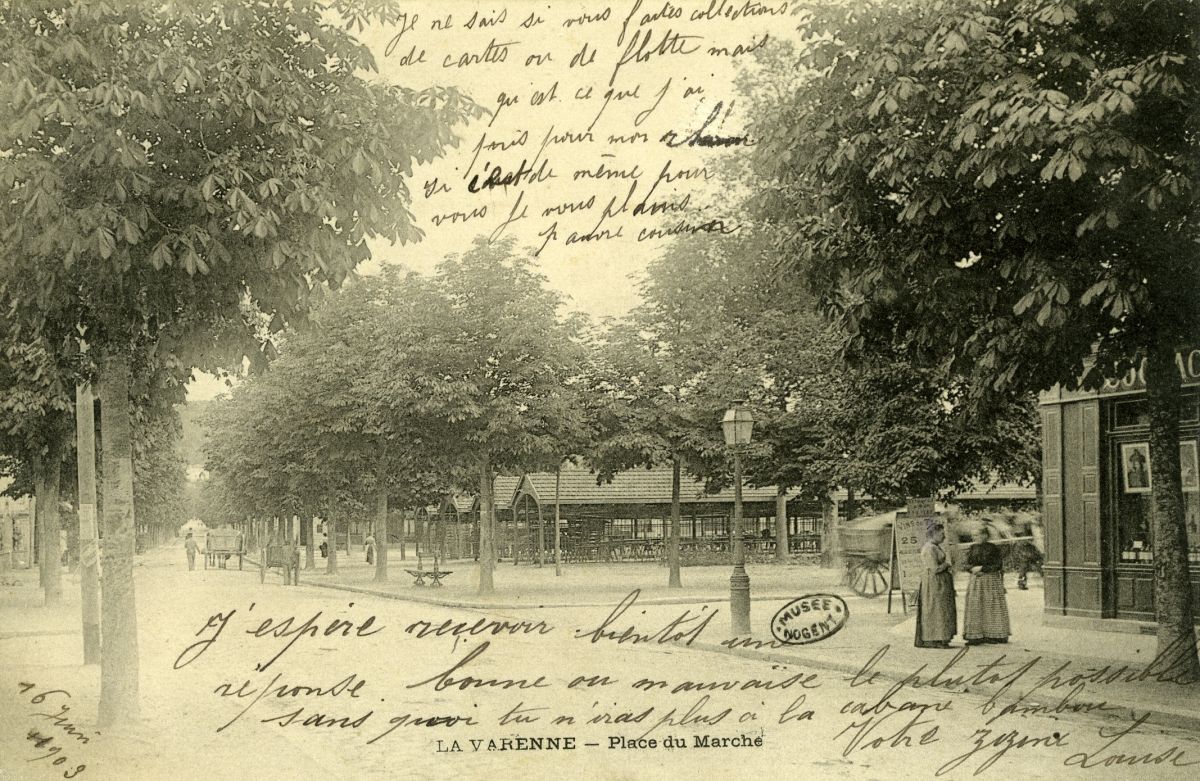 Je ne sais si vous faites collections
de cartes ou de flotte mais
qu'est ce que j'ai
pris pour moi
si de même pour
vous je vous plains
pauvre cousine
25
MUSÉE
NOGENT
J'espère reçevoir bientôt un
réponse bonne ou mauvaise le plutot possible
sans quoi tu n'iras plus à la cabane bambou
Votre zizine
Louise
16 Juin
1903
LA VARENNE — Place du Marché